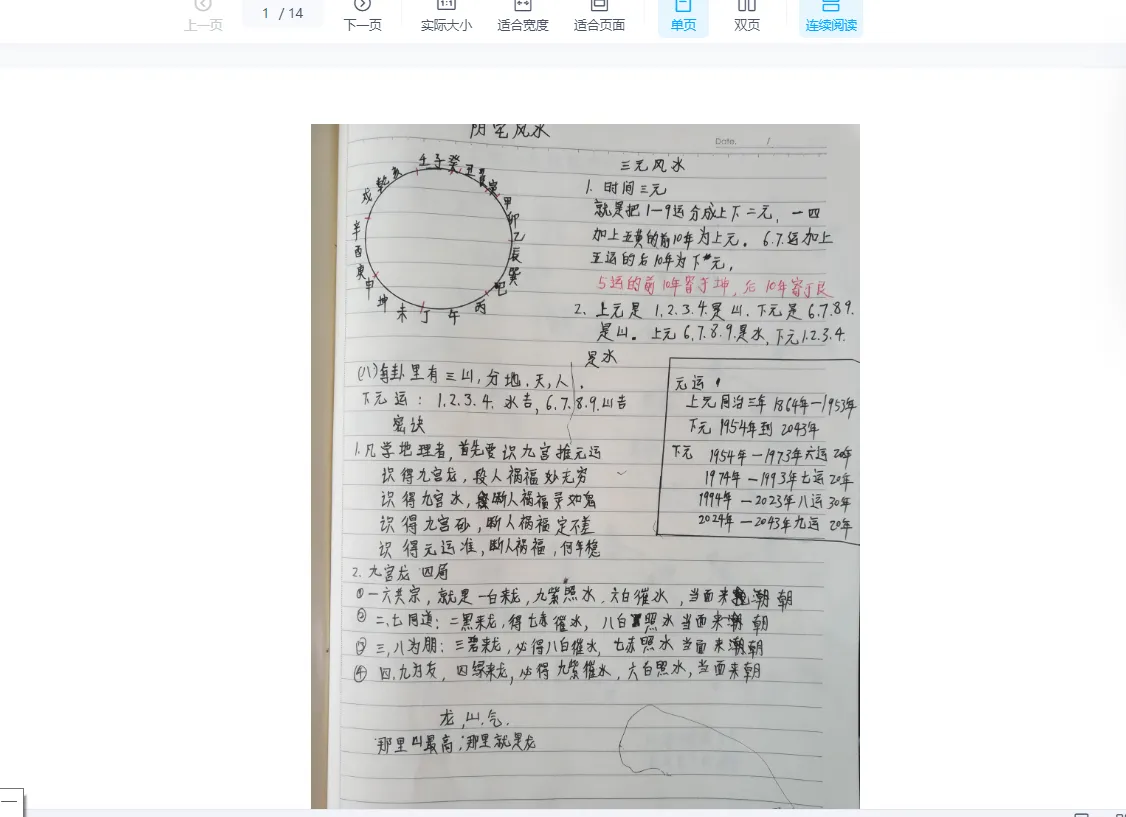 上一页
1 / 14
下一页
实际大小
适合宽度
适合页面
单页
双页
连续阅读
阴宅风水
Date. /
壬子癸丑艮寅甲卯乙辰巽巳丙午丁未坤申庚酉辛戌乾亥
三元风水
1. 时间三元
就是把1—9运分成上下二元，一四
加上五黄的前10年为上元。6.7.运加上
五运的后10年为下元，
5运的前10年寄于坤，后10年寄于艮
2. 上元是 1.2.3.4.是山.下元是6.7.8.9.
是山。上元6.7.8.9.是水，下元1.2.3.4.
是水
(八)每卦里有三山，分地.天，人.
下元运：1.2.3.4. 水吉，6.7.8.9.山吉
密诀
1.凡学地理者，首先要识九宫推元运
识得九宫龙，段人祸福妙无穷
识得九宫水，断人祸福灵如鬼
识得九宫砂，断人祸福定不差
识得元运准，断人祸福，何年稳
元运
上元同治三年 1864年—1953年
下元 1954年到 2043年
下元 1954年—1973年六运20年
1974年—1993年七运20年
1994年—2023年八运30年
2024年—2043年九运20年
2. 九宫龙 四局
①一六共宗，就是一白来龙，九紫照水.六白催水，当面来朝
②二、七同道：二黑来龙，得七赤催水，八白照水当面来朝
③三,八为朋：三碧来龙，必得八白催水，七赤照水当面来朝
④四.九为友，四绿来龙，必得九紫催水，六白照水，当面来朝
龙,山.气.
那里山最高；那里就是龙